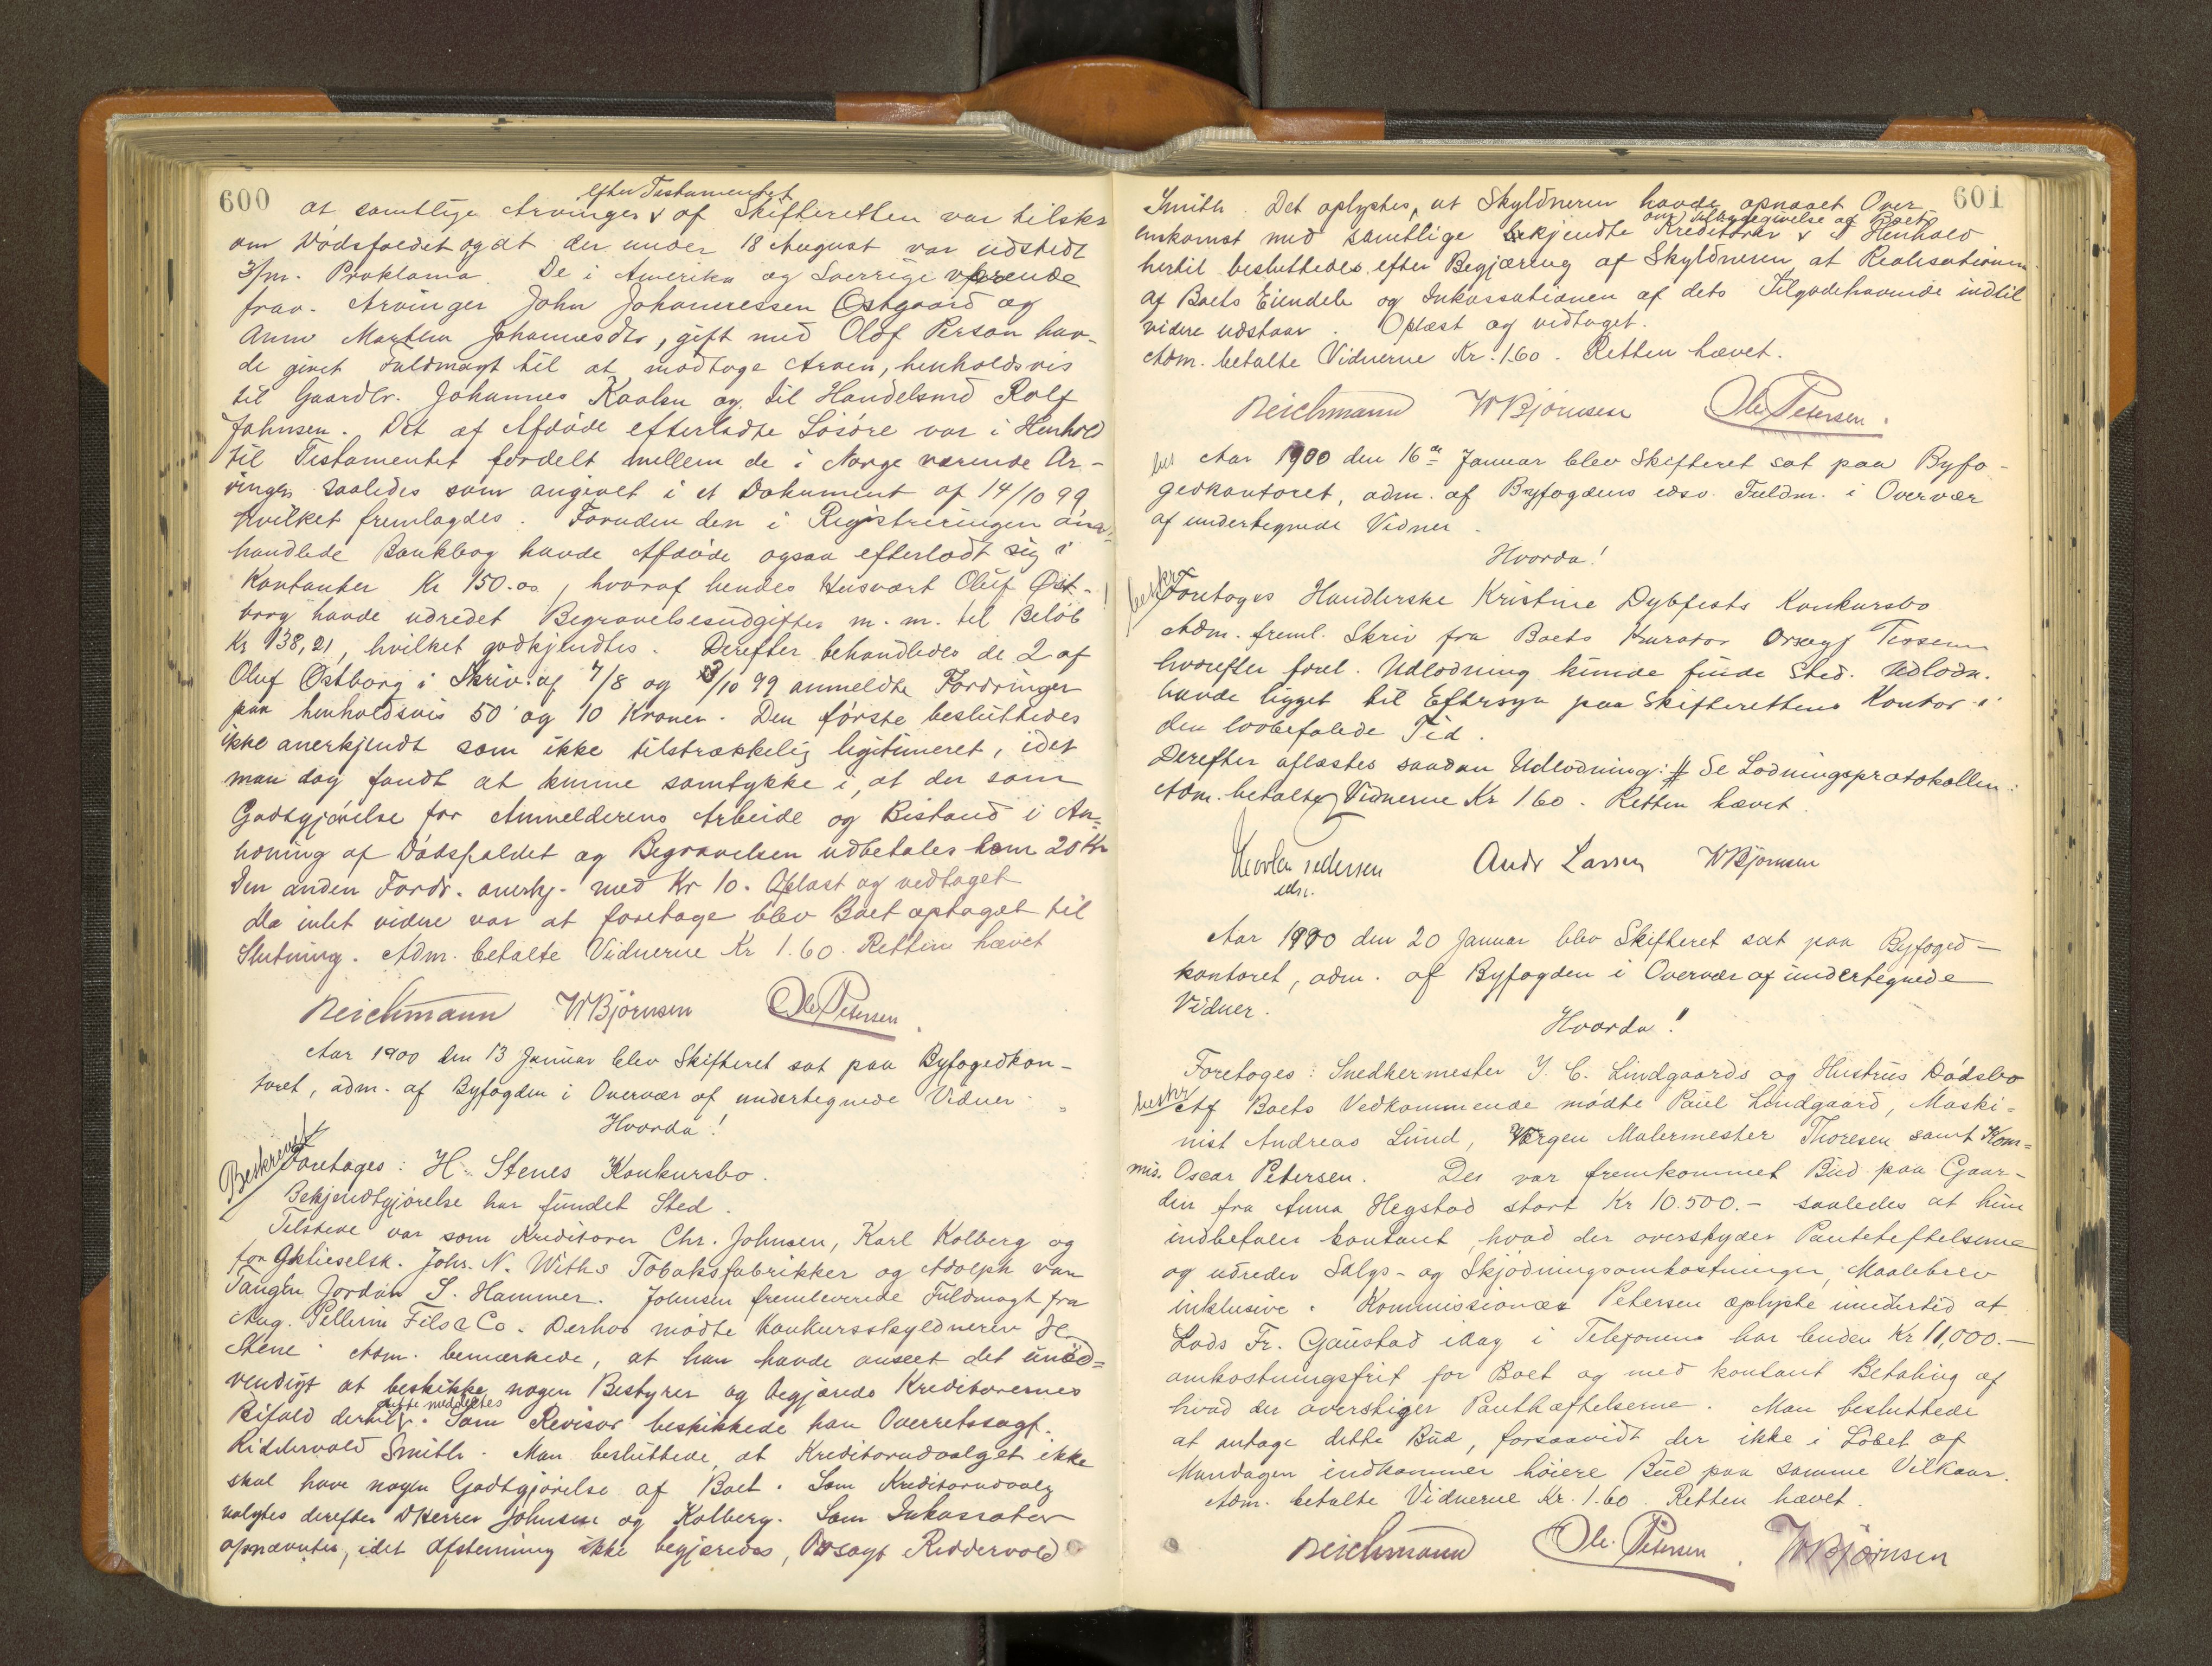 600
efter Testamentet
at samtlige Arvinger v af Skifteretten var tilskr
om Dødsfaldet og at der under 18 August var udstedt
3/m. Proklama. De i Amerika og Sverrige værende
frav. Arvinger John Johannessen Østgaard og
Anne Martha Johannesdtr, gift med Olof Person hav-
de givet Fuldmagt til at modtage Arven, henholdsvis
til Gaardbr. Johannes Kaalen og til Handelsmd Rolf
Johnsen. Det af Afdøde efterladte Løsøre var i Henhold
til Testamentet fordelt mellem de i Norge værende Ar-
vinger saaledes som angivet i et Dokument af 14/10 99
hvilket fremlagdes. Foruden den i Registreringen om-
handlede Bankbog havde Afdøde ogsaa efterladt sig i
Kontanter Kr 150.00, hvoraf hendes Husvært Oluf Øst-
borg havde udredet Begravelsesudgifter m. m. til Beløb
Kr 138,21, hvilket godkjendtes. Derefter behandledes de 2 af
Oluf Østborg i Skriv. af 7/8 og 3/10 99 anmeldte Fordringer
paa henholdsvis 50 og 10 Kroner. Den første besluttedes
ikke anerkjendt som ikke tilstrækkelig legitimeret, idet
man dog fandt at kunne samtykke i, at der som
Godtgjørelse for Anmelderens Arbeide og Bistand i An-
ledning af Dødsfaldet og Begravelsen udbetales ham 20 Kr
Den anden Fordr. anerkj. med Kr 10. Oplæst og vedtaget
Da intet videre var at foretage blev Boet optaget til
Slutning. Adm. betalte Vidnerne Kr 1.60. Retten hævet
Reichmann WBjørnsen Ole Petersen.
Aar 1900 den 13 Januar blev Skifteret sat paa Byfogedkon-
toret, adm. af Byfogden i Overvær af undertegnede Vidner.
Hvorda!
Beskrevet
Foretoges: H. Stenes Konkursbo.
Bekjendtgjørelse har fundet Sted.
Tilstede var som Kreditorer Chr. Johnsen, Karl Kolberg og
for Aktieselsk. Johs. N. Withs Tobaksfabrikker og Adolph van
Tangen Jordan S. Hammer. Johnsen fremleverede Fuldmagt fra
Aug. Pellerin Fils & Co. Derhos mødte Konkursskyldneren H.
Stene. Adm. bemærkede, at han havde anseet det unød-
vendigt at beskikke nogen Bestyrer og begjærede Kreditorernes
dette meddeltes
Bifald dertil v. Som Revisor beskikkede han Overretssagf.
Riddervold Smith. Man besluttede at Kreditorudvalget ikke
skal have nogen Godtgjørelse af Boet. Som Kreditorudvalg
valgtes derefter DHerrer Johnsen og Kolberg. Som Inkassator
opnævntes, idet Afstemning ikke begjæredes, Orsagf Riddervold
601
Smith. Det oplystes, at Skyldneren havde opnaaet Over
om Tilbagegivelse af Boet
enskomst med samtlige bekjendte Kreditorer v I Henhold
hertil besluttedes efter Begjæring af Skyldneren at Realisationen
af Boets Eiendele og Inkassationen af dets Tilgodehavende indtil
videre udstaar. Oplæst og vedtaget.
Adm. betalte Vidnerne Kr. 1.60. Retten hævet.
Reichmann WBjørnsen Ole Petersen.
Aar 1900 den 16de Januar blev Skifteret sat paa Byfo-
gedkontoret, adm. af Byfogdens edsv. Fuldm. i Overvær
af undertegnede Vidner.
Hvorda!
beskr
Foretoges Handlerske Kristine Dybfests Konkursbo
Adm. freml. Skriv fra Boets Kurator Orsagf Tessem
hvorefter forel. Udlodning kunde finde Sted. Udlodn.
havde ligget til Eftersyn paa Skifterettens Kontor i
den lovbefalede Tid.
Derefter aflæstes saadan Udlodning: # Se Lodningsprotokollen:
Adm. betalte Vidnerne Kr 1 60. Retten hævet.
Pedersen Andr Larsen WBjørnsen
edsv.
Aar 1900 den 20 Januar blev Skifteret sat paa Byfoged-
kontoret, adm. af Byfogden i Overvær af undertegnede
Vidner.
Hvorda!
Foretoges: Snedkermester J. C. Lindgaards og Hustrus Dødsbo
beskr
Af Boets Vedkommende mødte Paul Lindgaard, Maski-
nist Andreas Lund, Værgen Malermester Thoresen samt Kom-
mis. Oscar Petersen. Der var fremkommet Bud paa Gaar-
den fra Anna Hegstad stort Kr 10.500.- saaledes at hun
indbetaler kontant, hvad der overskyder Panteheftelserne
og udreder Salgs- og Skjødningsomkostninger, Maalebrev
inklusive. Kommissionær Petersen oplyste imidlertid at
Lods Fr. Gaustad idag i Telefonen har buden Kr 11,000.-
omkostningsfrit for Boet og med kontant Betaling af
hvad der overstiger Panthæftelserne. Man besluttede
at antage dette Bud, forsaavidt der ikke i Løbet af
Mandagen indkommer høiere Bud paa samme Vilkaar.
Adm. betalte Vidnerne Kr. 1.60. Retten hævet.
Reichmann Ole Petersen. WBjørnsen